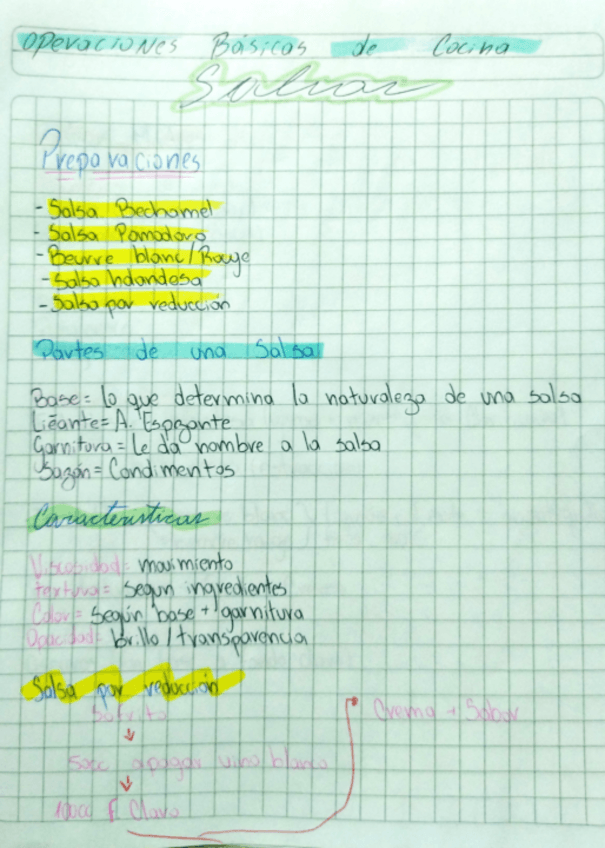 Operaciones Básicas de Cocina
Salsas
Preparaciones
- Salsa Bechamel
- Salsa Pomodoro
- Beurre blanc / Rouge
- Salsa holandesa
- Salsa por reducción
Partes de una Salsa
Base = lo que determina la naturaleza de una salsa
Licante = A. Espezante
Garnitura = Le da nombre a la salsa
Sazón = Condimentos
Características
Viscosidad = movimiento
textura = según ingredientes
Color = según base + garnitura
Opacidad = brillo / transparencia
Salsa por reducción
Sofrito
Crema + Sabor
50cc apagar vino blanco
100cc F. Claro